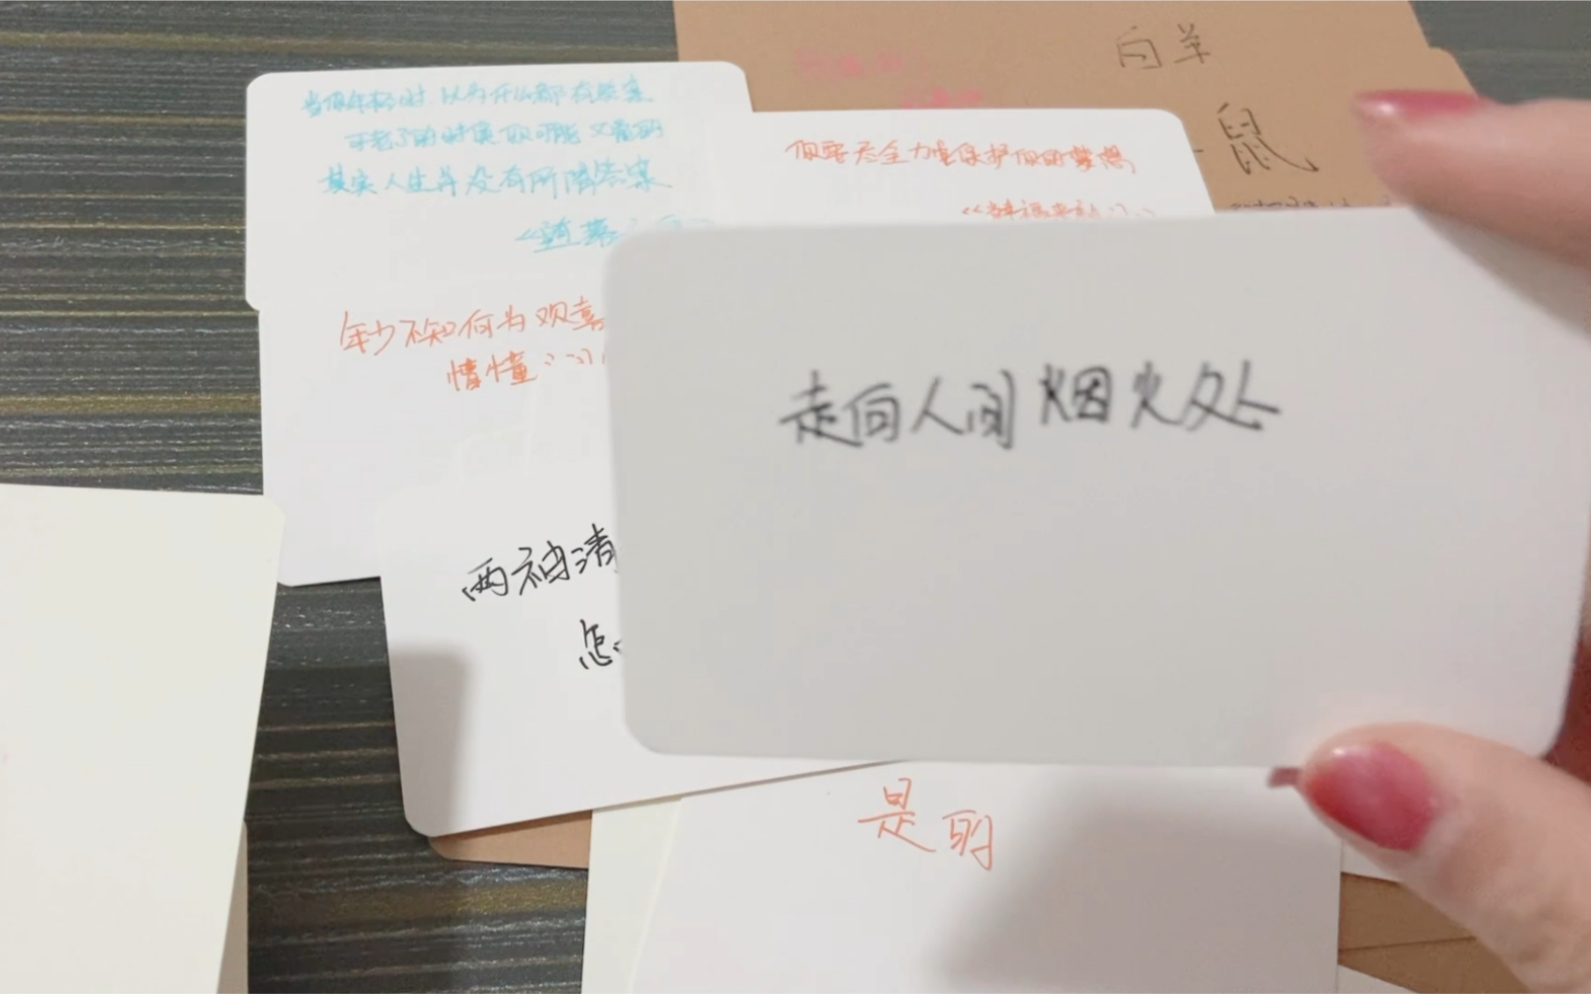 白羊
鼠
当你年轻时 以为什么都有答案
可老了的时候 你可能又觉的
其实人生并没有所谓答案
你要尽全力去保护你的梦想
《当幸福来敲门》
年少不知何为欢喜
情懂
走向人间烟火处
两袖清
怎
是的